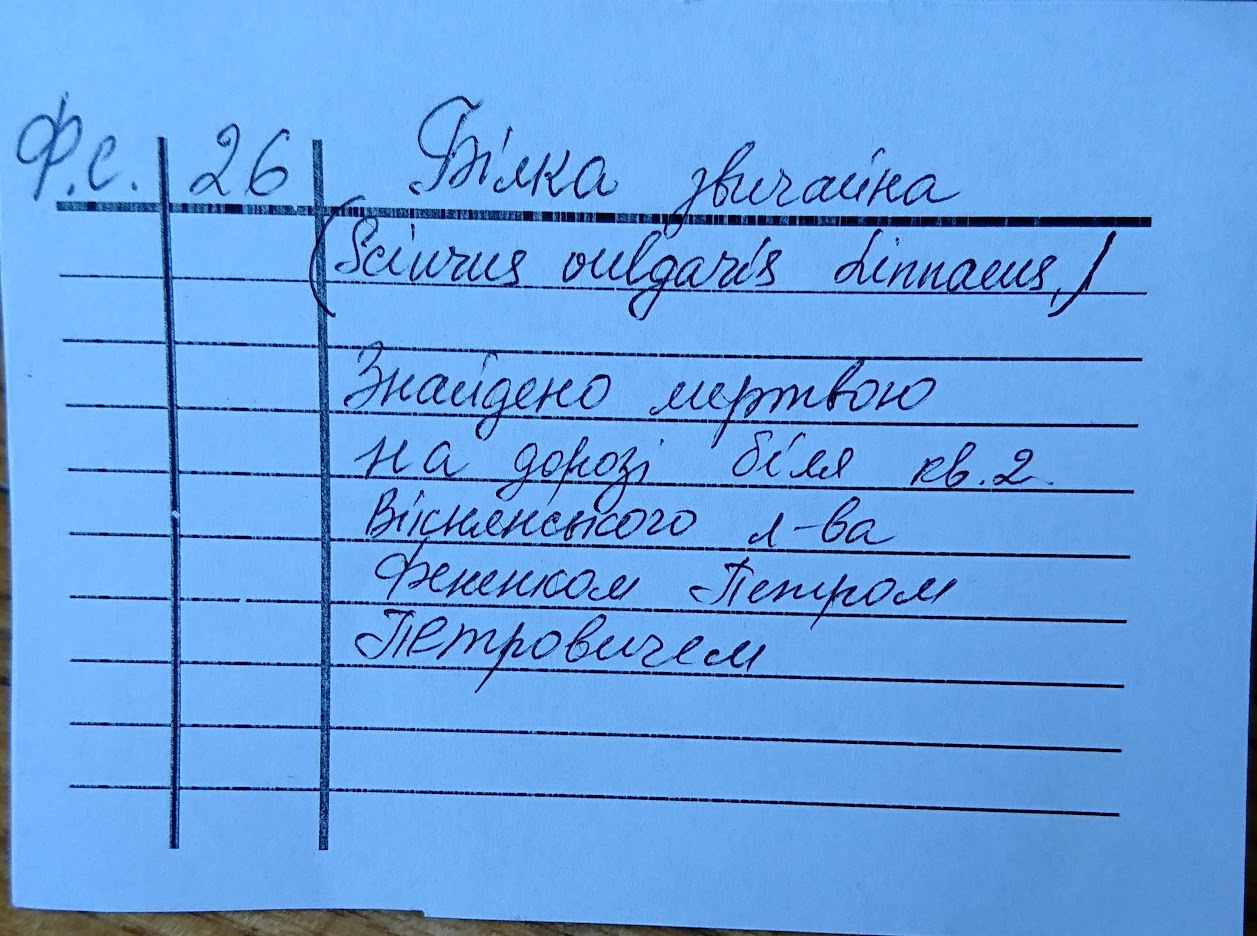 Ф.с. 26 Білка звичайна
(Sciurus vulgaris Linnaeus,)
Знайдено мертвою
на дорозі біля кв.2
л-ва
Петром
Петровичем